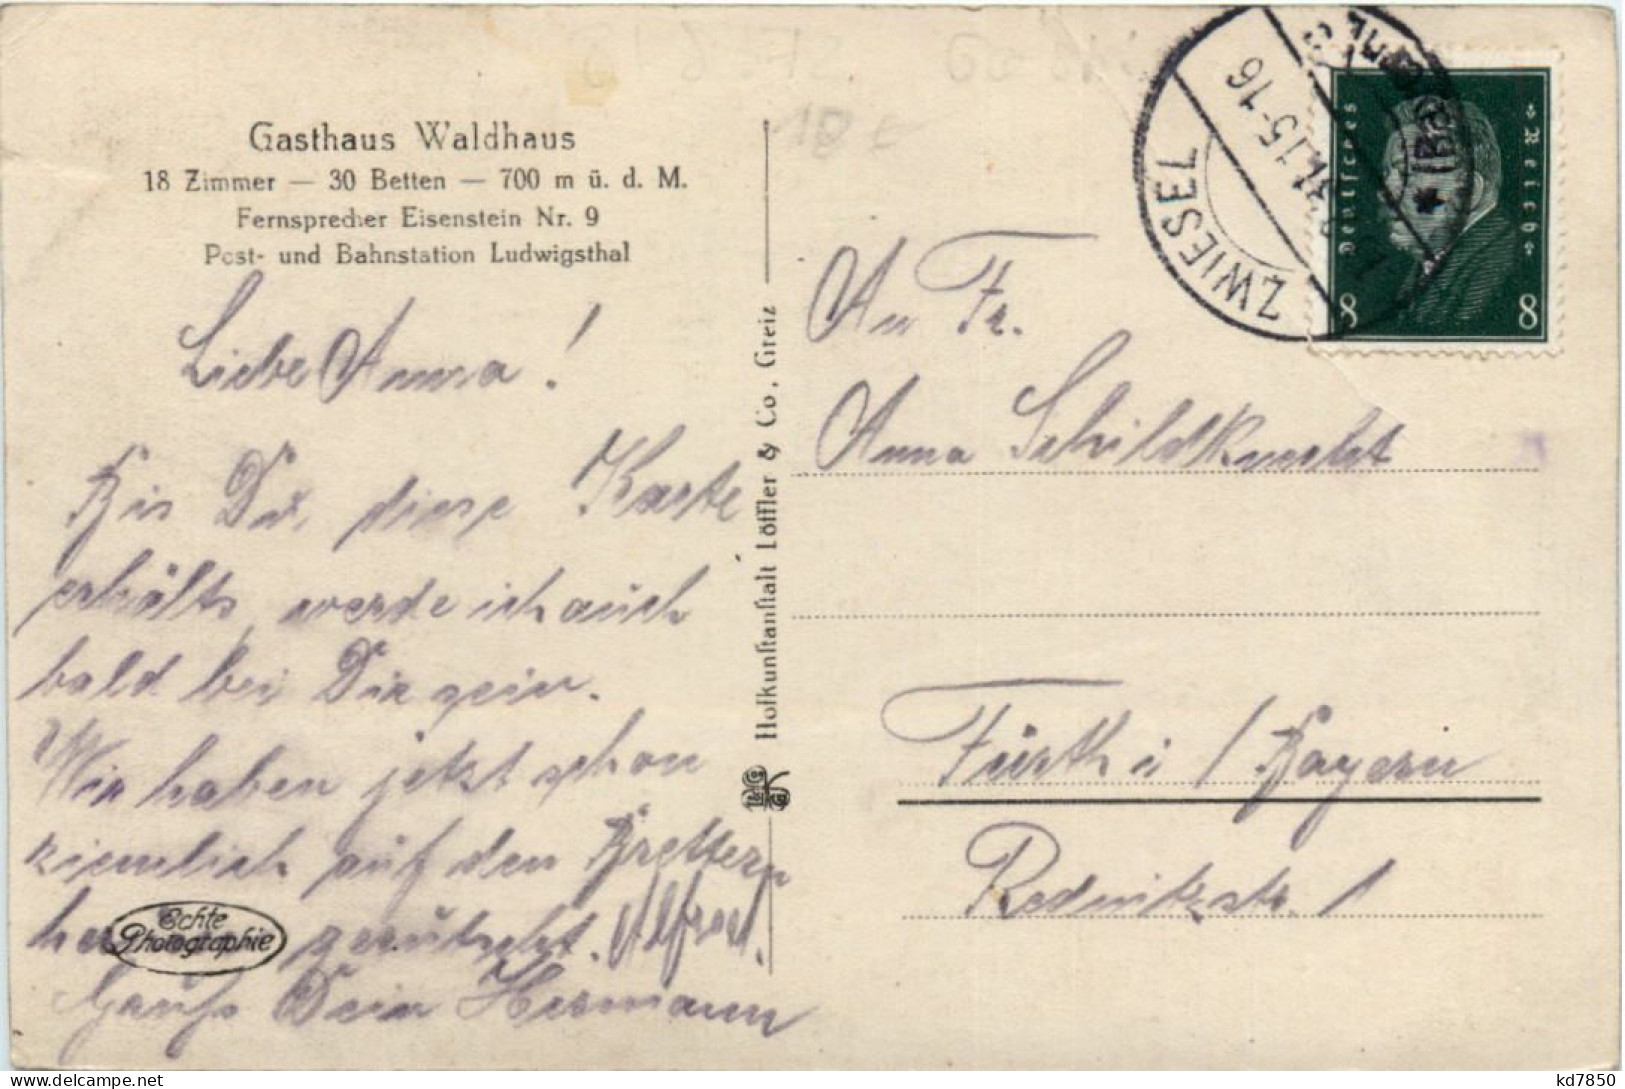 Gasthaus Waldhaus
18 Zimmer — 30 Betten — 700 m ü. d. M.
Fernsprecher Eisenstein Nr. 9
Post- und Bahnstation Ludwigsthal
Liebe Anna!
Bis Du, diese Karte
erhälts, werde ich auch
bald bei Dir sein.
Wir haben jetzt schon
ziemlich auf den Brettern
gerutscht. Alfred.
Dein Hermann
Echte
Photographie
Hofkunstanstalt Löffler & Co., Greiz
ZWIESEL
15-16
Deutsches
Reich
8 8
An Fr.
Anna Schildknecht
Fürth i/Bayern
Rednitzstr. 1
kd7850